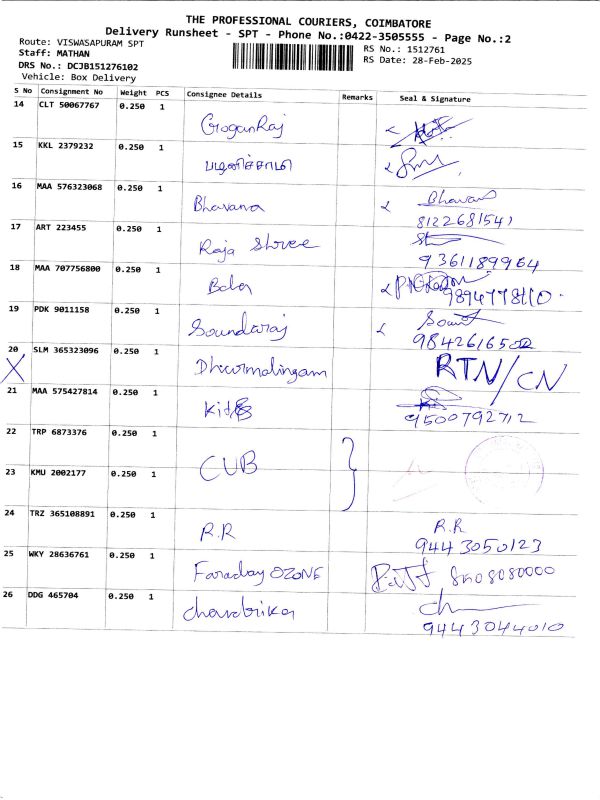 THE PROFESSIONAL COURIERS, COIMBATORE
Delivery Runsheet - SPT - Phone No.:0422-3505555 - Page No.:2
Route: VISWASAPURAM SPT
Staff: MATHAN
DRS No.: DCJB151276102
Vehicle: Box Delivery
RS No.: 1512761
RS Date: 28-Feb-2025
S No Consignment No Weight PCS Consignee Details Remarks Seal & Signature
14 CLT 50067767 0.250 1 GoganRaj
15 KKL 2379232 0.250 1 பழனிச்சாமி
16 MAA 576323068 0.250 1 Bhavana Bhavana
8122681541
17 ART 223455 0.250 1 Raja Shree
9361189964
18 MAA 707756800 0.250 1 Babu
9894778110
19 PDK 9011158 0.250 1 Soundaraj
9842616502
20 SLM 365323096 0.250 1 Dharmalingam RTN/CN
21 MAA 575427814 0.250 1
9500792712
22 TRP 6873376 0.250 1 CUB
23 KMU 2002177 0.250 1
24 TRZ 365108891 0.250 1 R.R R.R
9443050123
25 WKY 28636761 0.250 1 Faraday OZONE
26 DDG 465704 0.250 1 chandrika
9443044010